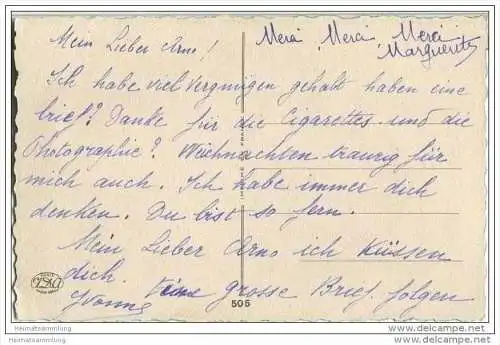 Mein Lieber Arno!
Merci Merci Merci
Marguerite
Ich habe viel Vergnügen gehabt haben eine
brief? Danke für die Cigarettes und die
Photographie? Weichnachten traurig für
mich auch. Ich habe immer dich
denken. Du bist so fern.
Mein Lieber Arno ich Küssen
dich. eine grosse Brief folgen
Yvonne
505
Heimatsammlung
Heimatsammlung